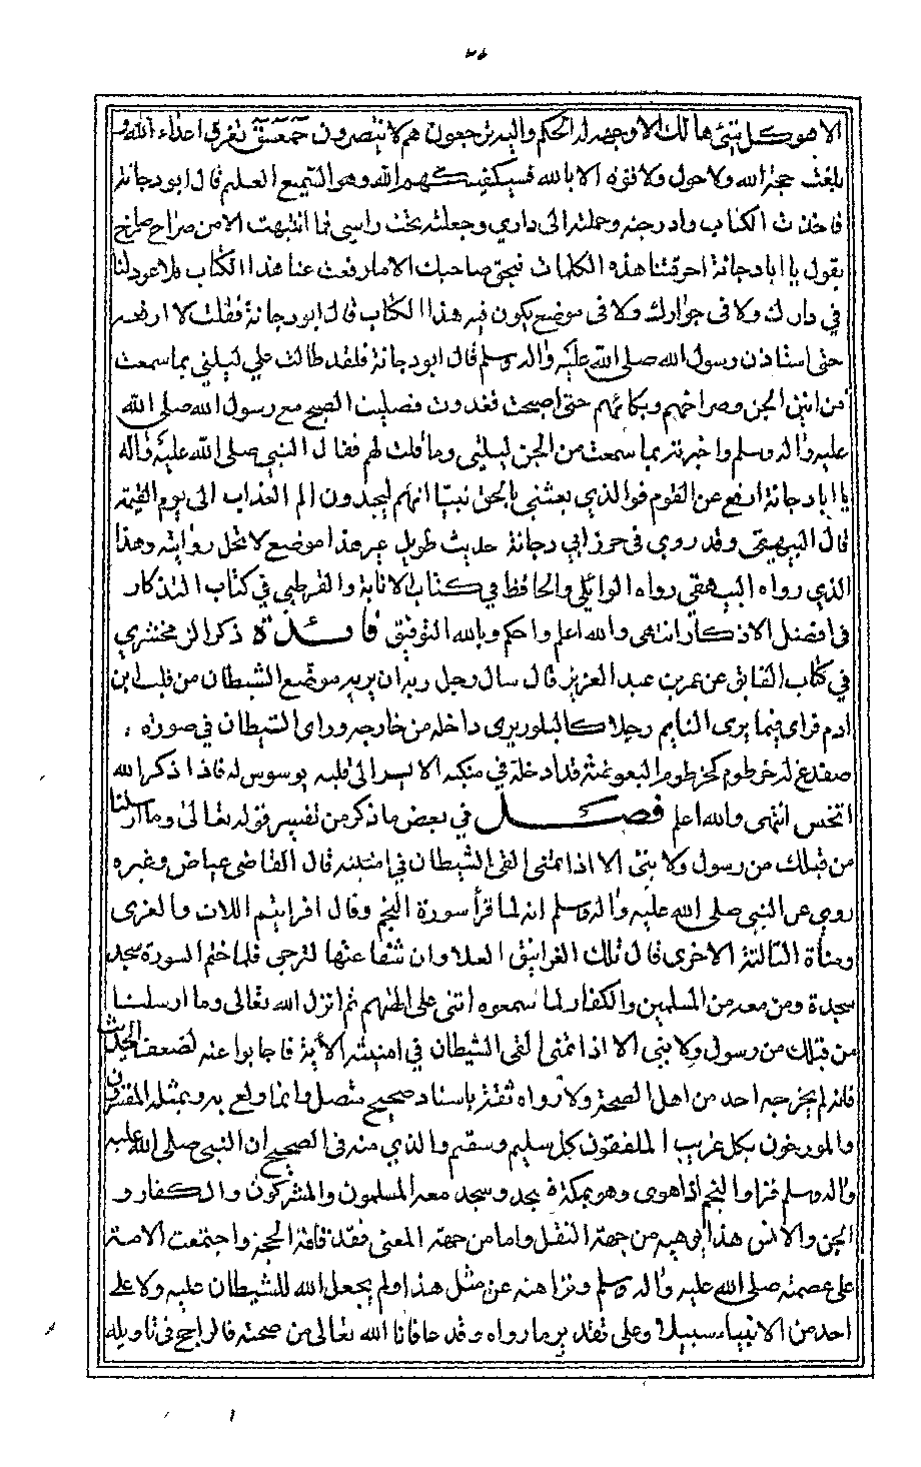 الا هو كل شئ هالك الا وجهه له الحكم واليه ترجعون هم لا ينصرون حمعسق تفرق اعداء الله و
بلغت حجة الله ولا حول ولا قوة الا بالله فسيكفيكهم الله وهو السميع العليم قال ابو دجانة
فاخذت الكتاب وادرجته وحملته الى داري وجعلته تحت راسي فما انتبهت الا من صراخ صارخ
يقول يا ابا دجانة احرقتنا هذه الكلمات فبحق صاحبك الا ما رفعت عنا هذا الكتاب فلا عود لنا
في دارك ولا فى جوارك ولا فى موضع يكون فيه هذا الكتاب قال ابو دجانة فقلت لا ارفعه
حتى استاذن رسول الله صلى الله عليه واله وسلم قال ابو دجانة فلقد طالت علي ليلتي بما سمعت
من انين الجن وصراخهم وبكائهم حتى اصبحت فغدوت فصليت الصبح مع رسول الله صلى الله
عليه واله وسلم واخبرته بما سمعت من الجن ليلتي وما قلت لهم فقال النبي صلى الله عليه واله
يا ابا دجانة ارفع عن القوم فوالذي بعثني بالحق نبيا انهم ليجدون الم العذاب الى يوم القيمة
قال البيهقي وقد روي في حرز ابي دجانة حديث طويل غير هذا موضوع لا تحل روايته وهذا
الذي رواه البيهقي رواه الوائلي والحافظ في كتاب الابانة والقرطبي في كتاب التذكار
فى افضل الاذكار انتهى والله اعلم واحكم وبالله التوفيق فائدة ذكر الزمخشري
في كتاب الفائق عن عمر بن عبد العزيز قال سال رجل ربه ان يريه موضع الشيطان من قلب ابن
ادم فراى فيما يرى النايم رجلا كالبلور يرى داخله من خارجه وراى الشيطان في صورة
ضفدع له خرطوم كخرطوم البعوضة قد ادخله في منكبه الايسر الى قلبه يوسوس له فاذا ذكر الله
انخنس انتهى والله اعلم فصل في بعض ما ذكر من تفسير قوله تعالى وما ارسلنا
من قبلك من رسول ولا نبي الا اذا تمنى القى الشيطان في امنيته قال القاضي عياض وغيره
روي عن النبي صلى الله عليه واله وسلم انه لما قرأ سورة النجم وقال افرايتم اللات والعزى
ومناة الثالثة الاخرى قال تلك الغرانيق العلا وان شفاعتها لترجى فلما ختم السورة سجد
سجدة ومن معه من المسلمين والكفار لما سمعوه اثنى على الهتهم ثم انزل الله تعالى وما ارسلنا
من قبلك من رسول ولا نبي الا اذا تمنى القى الشيطان في امنيته الأية فاجابوا عنه لضعف الحديث
فانه لم يخرجه احد من اهل الصحة ولا رواه ثقة باسناد صحيح متصل وانما ولع به وبمثله المفسرون
والمورخون بكل غريب الملفقون كل سليم وسقيم والذي منه فى الصحيح ان النبي صلى الله عليه
واله وسلم قرا والنجم اذا هوى وهو بمكة فسجد وسجد معه المسلمون والمشركون والكفار و
الجن والانس هذا توهيه من جهة النقل واما من جهة المعنى فقد قامة الحجة واجتمعت الامة
على عصمته صلى الله عليه واله وسلم ونزاهته عن مثل هذا ولم يجعل الله للشيطان عليه ولا على
احد من الانبياء سبيلا وعلى تقدير ما رواه وقد عافانا الله تعالى من صحته فالراجح فى تاويله